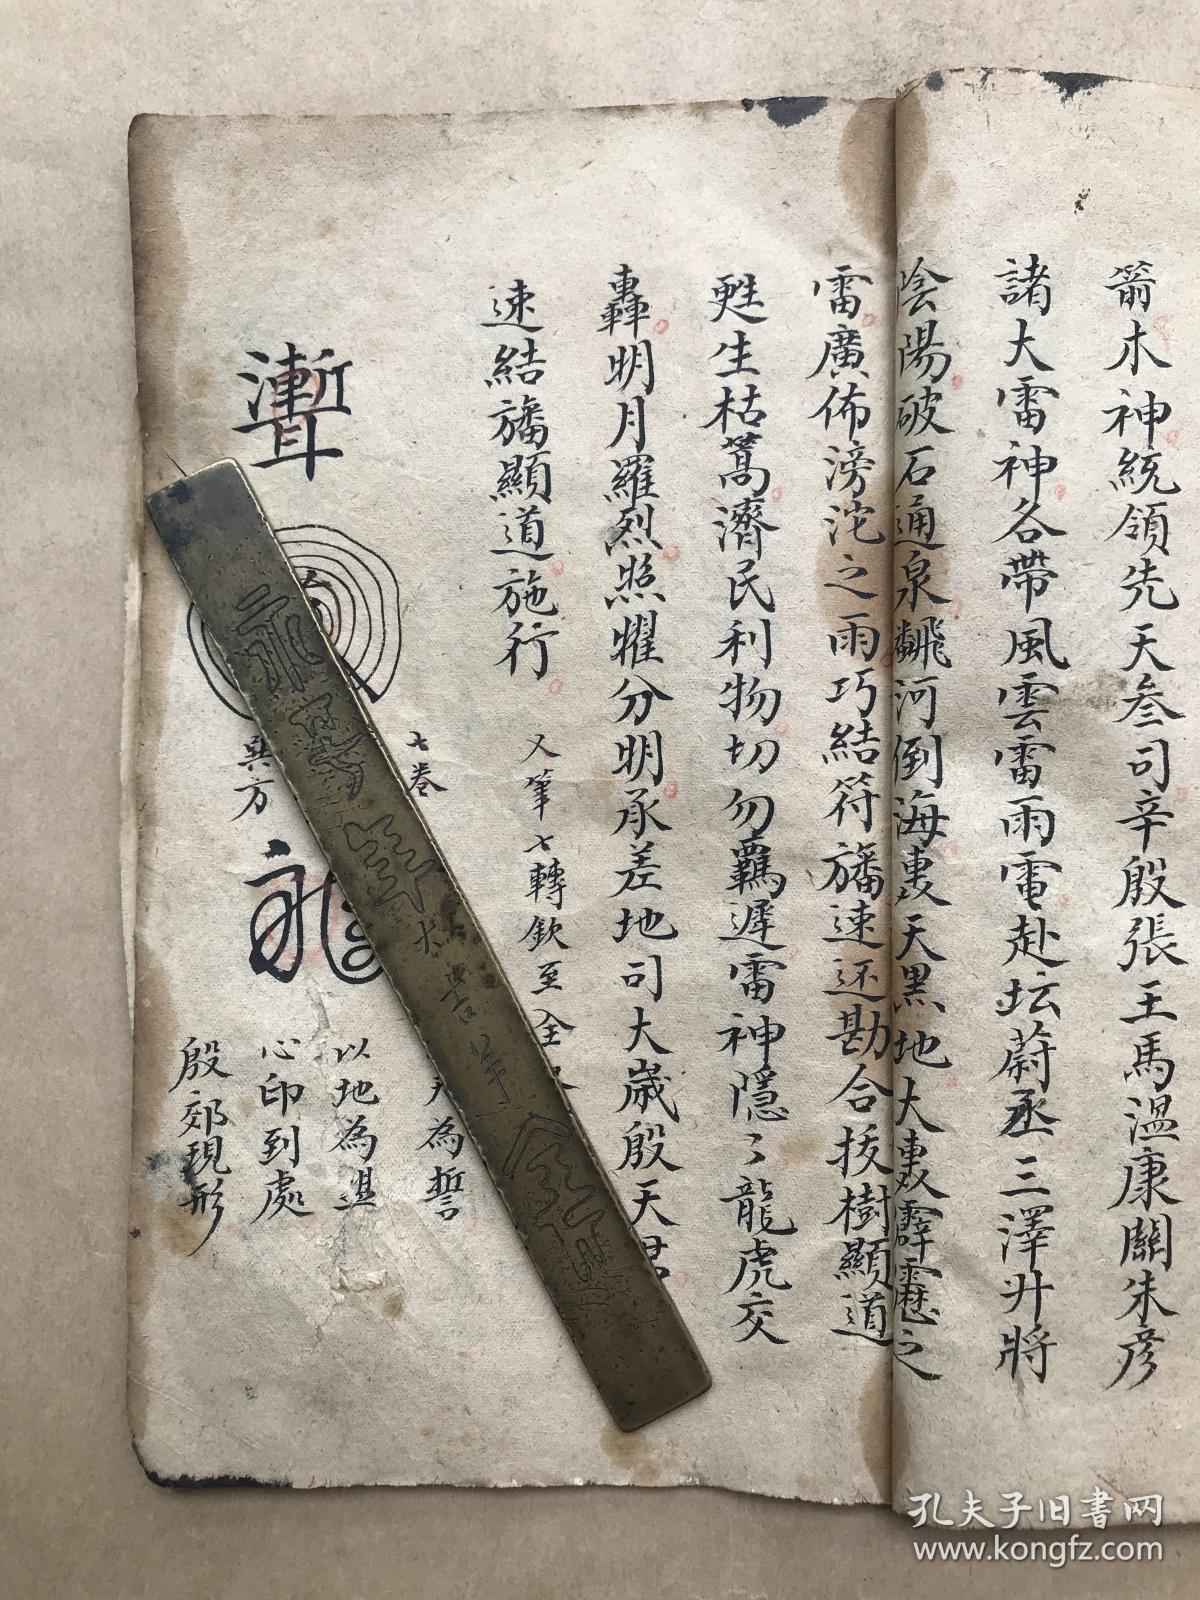 箭木神統領先天叁司辛殷張王馬溫康關朱彥
諸大雷神各帶風雲雷雨電赴坛蔚丞三澤廾將
陰陽破石通泉飜河倒海裏天黒地大裏霹靂之
雷廣佈滂沱之雨巧結符旛速还勘合拔樹顯道
甦生枯蒿濟民利物切勿羈遲雷神隱々龍虎交
轟明月羅烈照耀分明承差地司大歲殷天君
速結旛顯道施行
又筆七轉欽至全
七卷
為誓
以地為
心印到處
殷郊現形
巽方
大吉
孔夫子旧书网
www.kongfz.com